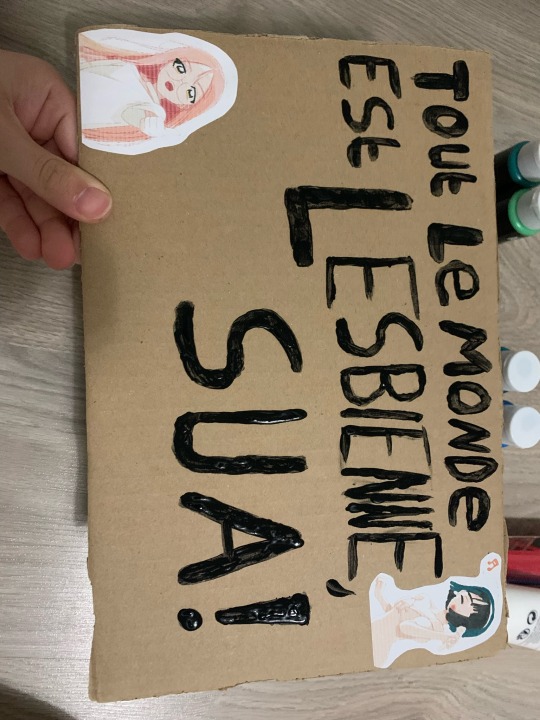 TOUt LE MONDE
ESt LESBIENNE,
SUA!